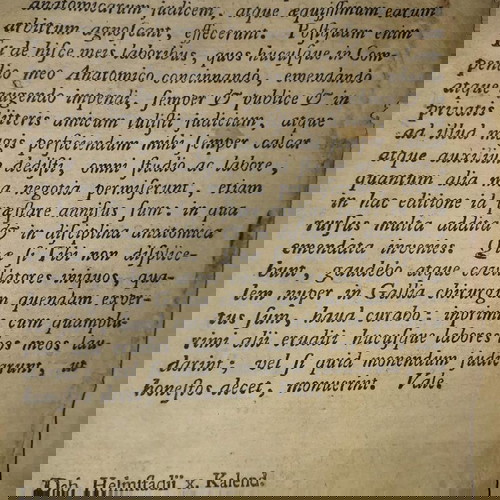 anatomicarum judicem, atque æquissimum earum
arbitrum agnoscam, effecerunt. Postquam enim
de hisce meis laboribus, quos hucusque in Com-
pendio meo Anatomico concinnando, emendando
atque augendo impendi, semper & publice & in
privatis litteris amicum tulisti judicium, atque
ad illud magis perficiendum mihi semper calcar
atque auxilium dedisti, omni studio ac labore,
quantum alia mea negotia permiserunt, etiam
in hac editione id præstare annisus sum: in qua
rursus multa addita & in disciplina anatomica
emendata invenies. Quæ si Tibi non displice-
bunt, gaudebo atque cavillatores iniquos, qua-
lem nuper in Gallia chirurgum quendam exper-
tus sum, haud curabo: inprimis cum quamplu-
rimi alii eruditi hucusque labores hos meos lau-
darint; vel si quid monendum judicarunt, ut
honestos decet, monuerint. Vale.
Helmstadii x. Kalend.